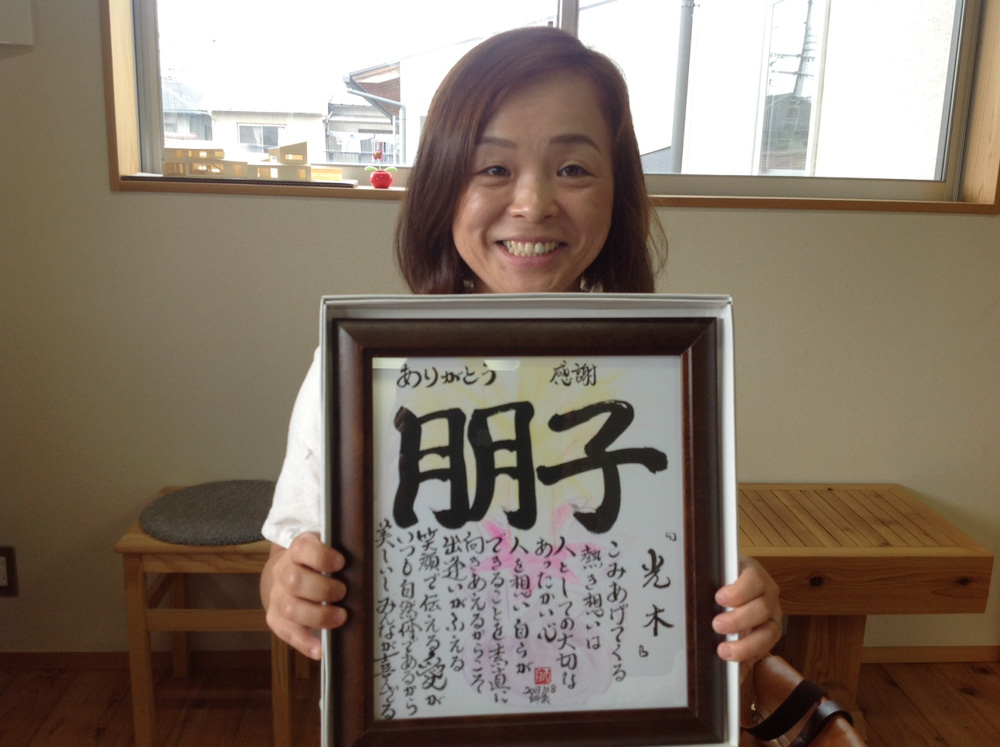 ありがとう
感謝
朋子
『光木』
こみあげてくる
熱き想いは
人としての大切な
あったかい心
人を想い自らが
できることを素直に
向きあえるからこそ
出逢いがふえる
笑顔で伝える愛が
いつも自然体であるから
美しいし みんなが喜べる